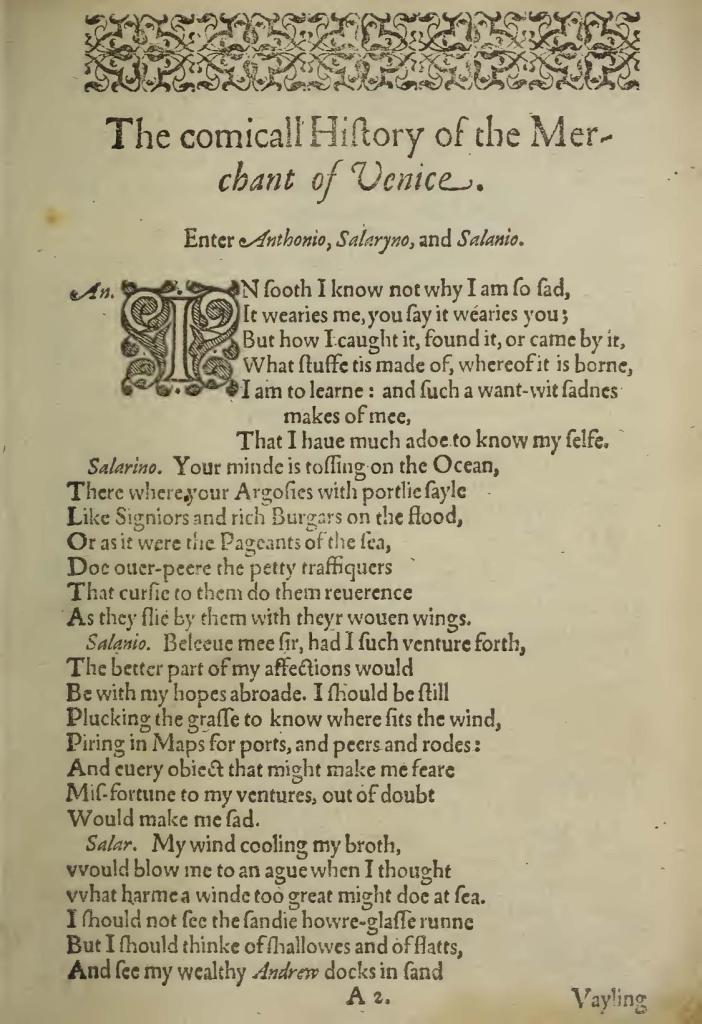 The comicall Hiſtory of the Mer-
chant of Venice.
Enter Anthonio, Salaryno, and Salanio.
An. IN ſooth I know not why I am ſo ſad,
It wearies me, you ſay it wearies you;
But how I caught it, found it, or came by it,
What ſtuffe tis made of, whereof it is borne,
I am to learne: and ſuch a want-wit ſadnes
makes of mee,
That I haue much adoe to know my ſelfe.
Salarino. Your minde is toſſing on the Ocean,
There where your Argoſies with portlie ſayle
Like Signiors and rich Burgars on the flood,
Or as it were the Pageants of the ſea,
Doe ouer-peere the petty traffiquers
That curſie to them do them reuerence
As they flie by them with theyr wouen wings.
Salanio. Beleeue mee ſir, had I ſuch venture forth,
The better part of my affections would
Be with my hopes abroade. I ſhould be ſtill
Plucking the graſſe to know where ſits the wind,
Piring in Maps for ports, and peers and rodes:
And euery obiect that might make me feare
Miſ-fortune to my ventures, out of doubt
Would make me ſad.
Salar. My wind cooling my broth,
vvould blow me to an ague when I thought
vvhat harme a winde too great might doe at ſea.
I ſhould not ſee the ſandie howre-glaſſe runne
But I ſhould thinke of ſhallowes and of flatts,
And ſee my wealthy Andrew docks in ſand
A 2. Vayling